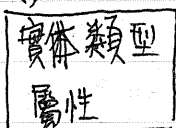 實体類型
屬性